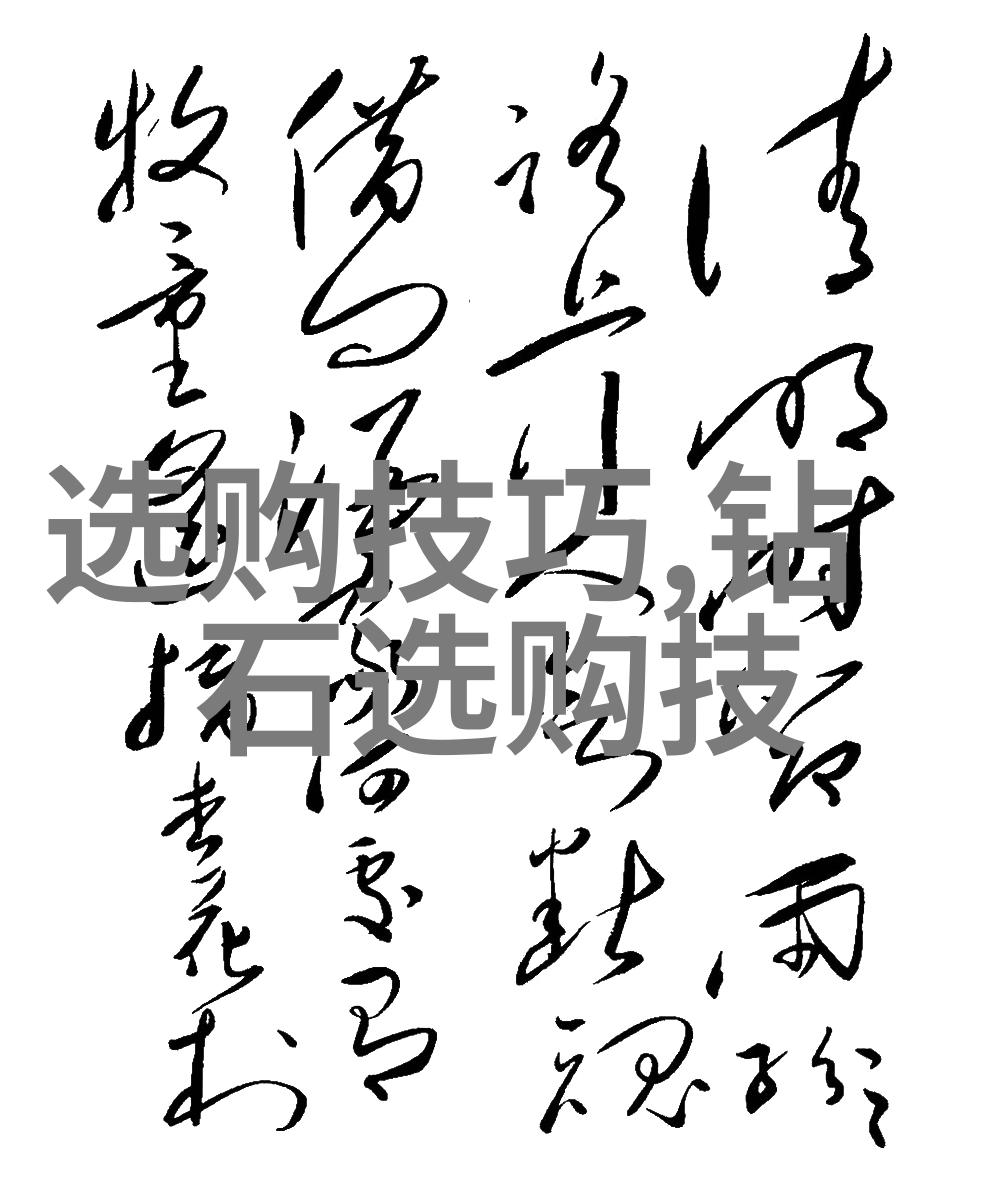 清明时节雨纷纷
路上行人欲断魂
借问酒家何处有
牧童遥指杏花村
选购技巧,钻
石选购技